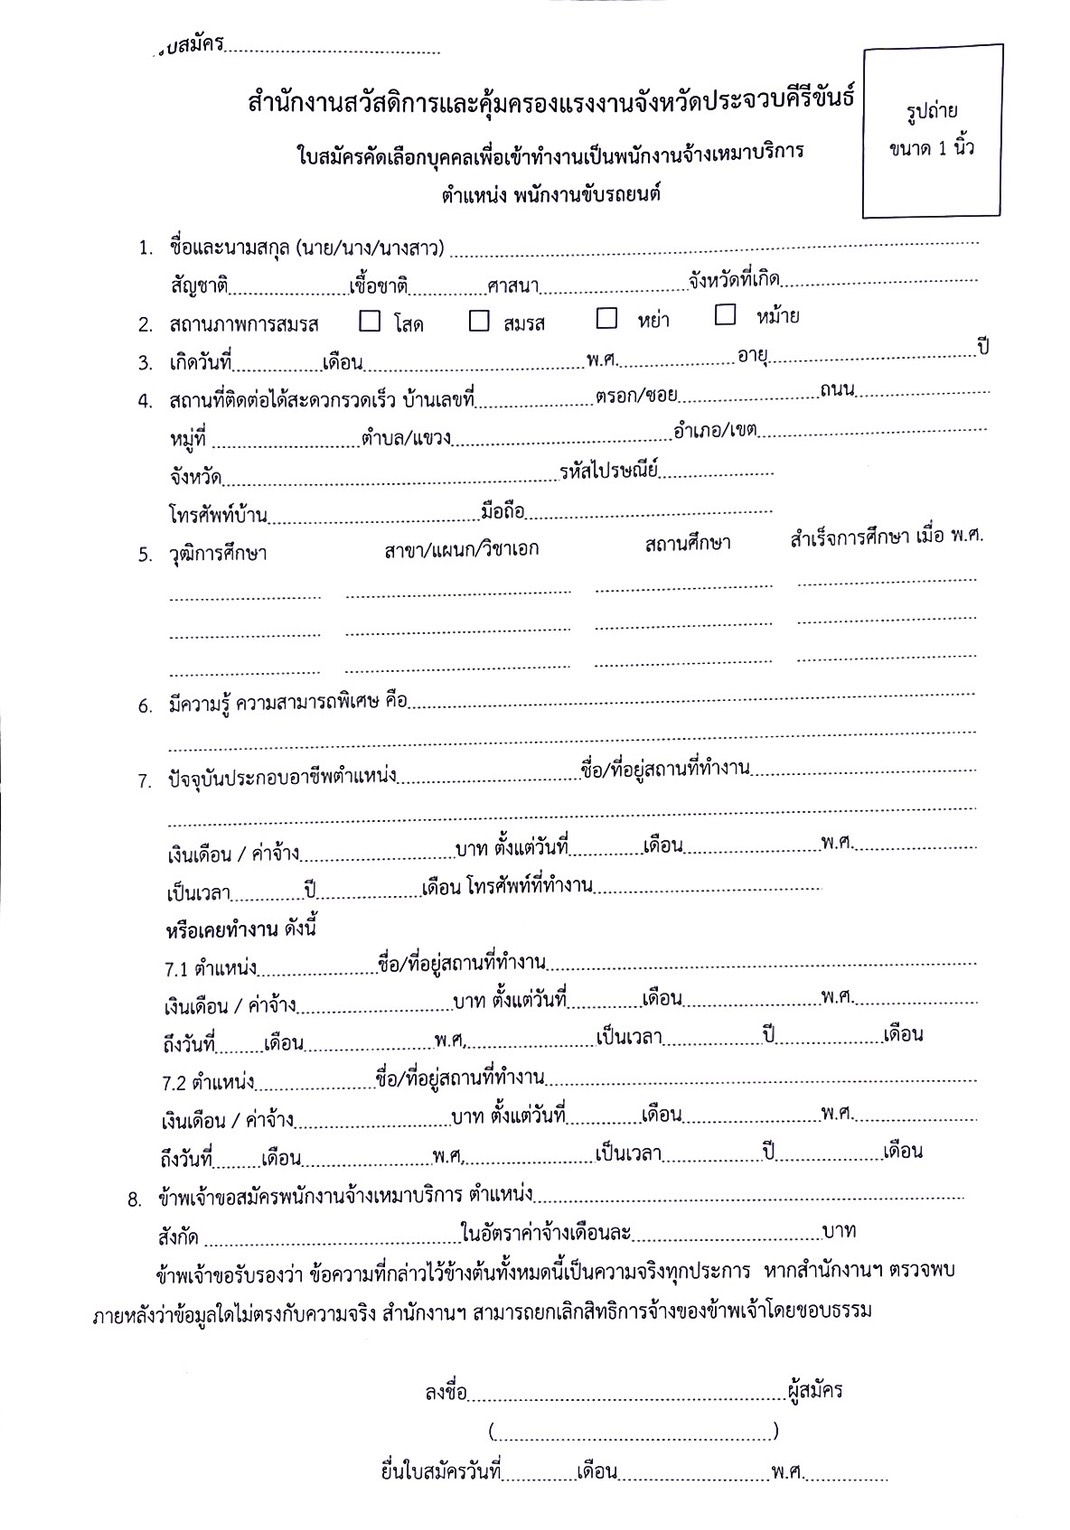 ใบสมัคร........................................
สำนักงานสวัสดิการและคุ้มครองแรงงานจังหวัดประจวบคีรีขันธ์
รูปถ่าย
ขนาด 1 นิ้ว
ใบสมัครคัดเลือกบุคคลเพื่อเข้าทำงานเป็นพนักงานจ้างเหมาบริการ
ตำแหน่ง พนักงานขับรถยนต์
1. ชื่อและนามสกุล (นาย/นาง/นางสาว) ........................................
สัญชาติ....................เชื้อชาติ...............ศาสนา....................จังหวัดที่เกิด....................
2. สถานภาพการสมรส ☐ โสด ☐ สมรส ☐ หย่า ☐ หม้าย
3. เกิดวันที่...............เดือน....................พ.ศ...............อายุ....................ปี
4. สถานที่ติดต่อได้สะดวกรวดเร็ว บ้านเลขที่....................ตรอก/ซอย....................ถนน....................
หมู่ที่ ....................ตำบล/แขวง....................อำเภอ/เขต....................
จังหวัด....................รหัสไปรษณีย์....................
โทรศัพท์บ้าน....................มือถือ....................
5. วุฒิการศึกษา สาขา/แผนก/วิชาเอก สถานศึกษา สำเร็จการศึกษา เมื่อ พ.ศ.
.................... .................... .................... ....................
.................... .................... .................... ....................
.................... .................... .................... ....................
6. มีความรู้ ความสามารถพิเศษ คือ........................................
........................................
7. ปัจจุบันประกอบอาชีพตำแหน่ง....................ชื่อ/ที่อยู่สถานที่ทำงาน....................
........................................
เงินเดือน / ค่าจ้าง....................บาท ตั้งแต่วันที่...............เดือน....................พ.ศ....................
เป็นเวลา...............ปี....................เดือน โทรศัพท์ที่ทำงาน....................
หรือเคยทำงาน ดังนี้
7.1 ตำแหน่ง....................ชื่อ/ที่อยู่สถานที่ทำงาน....................
เงินเดือน / ค่าจ้าง....................บาท ตั้งแต่วันที่...............เดือน....................พ.ศ....................
ถึงวันที่..........เดือน....................พ.ศ,....................เป็นเวลา....................ปี....................เดือน
7.2 ตำแหน่ง....................ชื่อ/ที่อยู่สถานที่ทำงาน....................
เงินเดือน / ค่าจ้าง....................บาท ตั้งแต่วันที่...............เดือน....................พ.ศ....................
ถึงวันที่..........เดือน....................พ.ศ,....................เป็นเวลา....................ปี....................เดือน
8. ข้าพเจ้าขอสมัครพนักงานจ้างเหมาบริการ ตำแหน่ง........................................
สังกัด ....................ในอัตราค่าจ้างเดือนละ....................บาท
ข้าพเจ้าขอรับรองว่า ข้อความที่กล่าวไว้ข้างต้นทั้งหมดนี้เป็นความจริงทุกประการ หากสำนักงานฯ ตรวจพบ
ภายหลังว่าข้อมูลใดไม่ตรงกับความจริง สำนักงานฯ สามารถยกเลิกสิทธิการจ้างของข้าพเจ้าโดยชอบธรรม
ลงชื่อ........................................ผู้สมัคร
(........................................)
ยื่นใบสมัครวันที่...............เดือน....................พ.ศ................